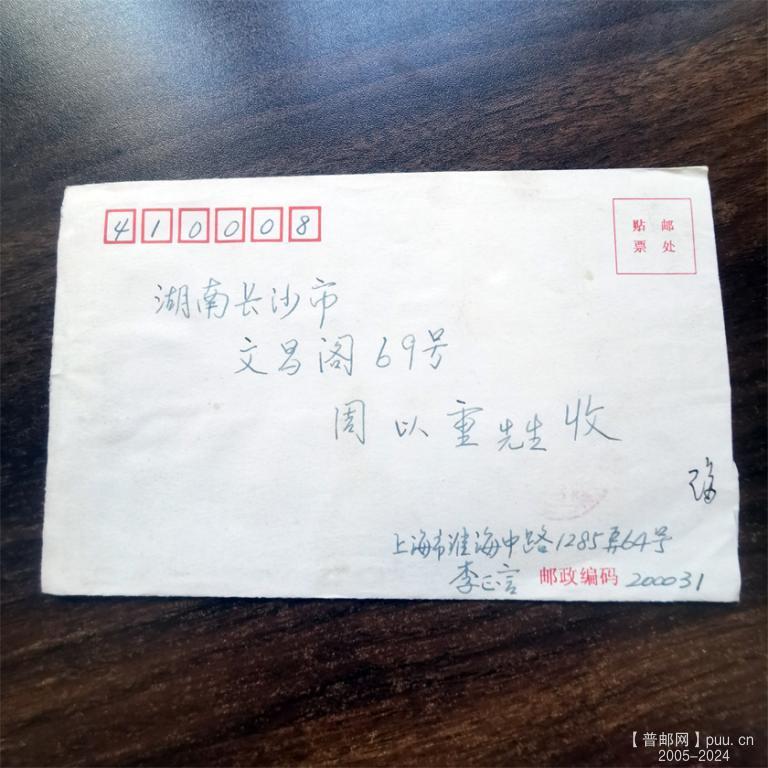 410008
贴 邮
票 处
湖南长沙市
文昌阁69号
周以重先生 收
上海市淮海中路1285弄64号
李正言 邮政编码 200031
【普邮网】puu.cn
2005-2024